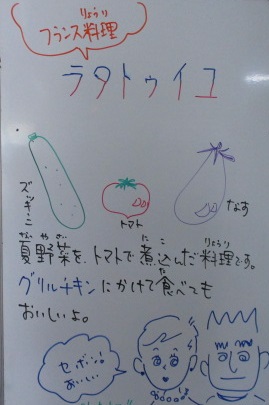 りょうり
フランス料理
ラタトゥイユ
ズッキーニ
トマト
なす
なつやさい にこ りょうり
夏野菜を、トマトで煮込んだ料理です。
た
グリルチキンにかけて食べても
おいしいよ。
セボン!
おいしい